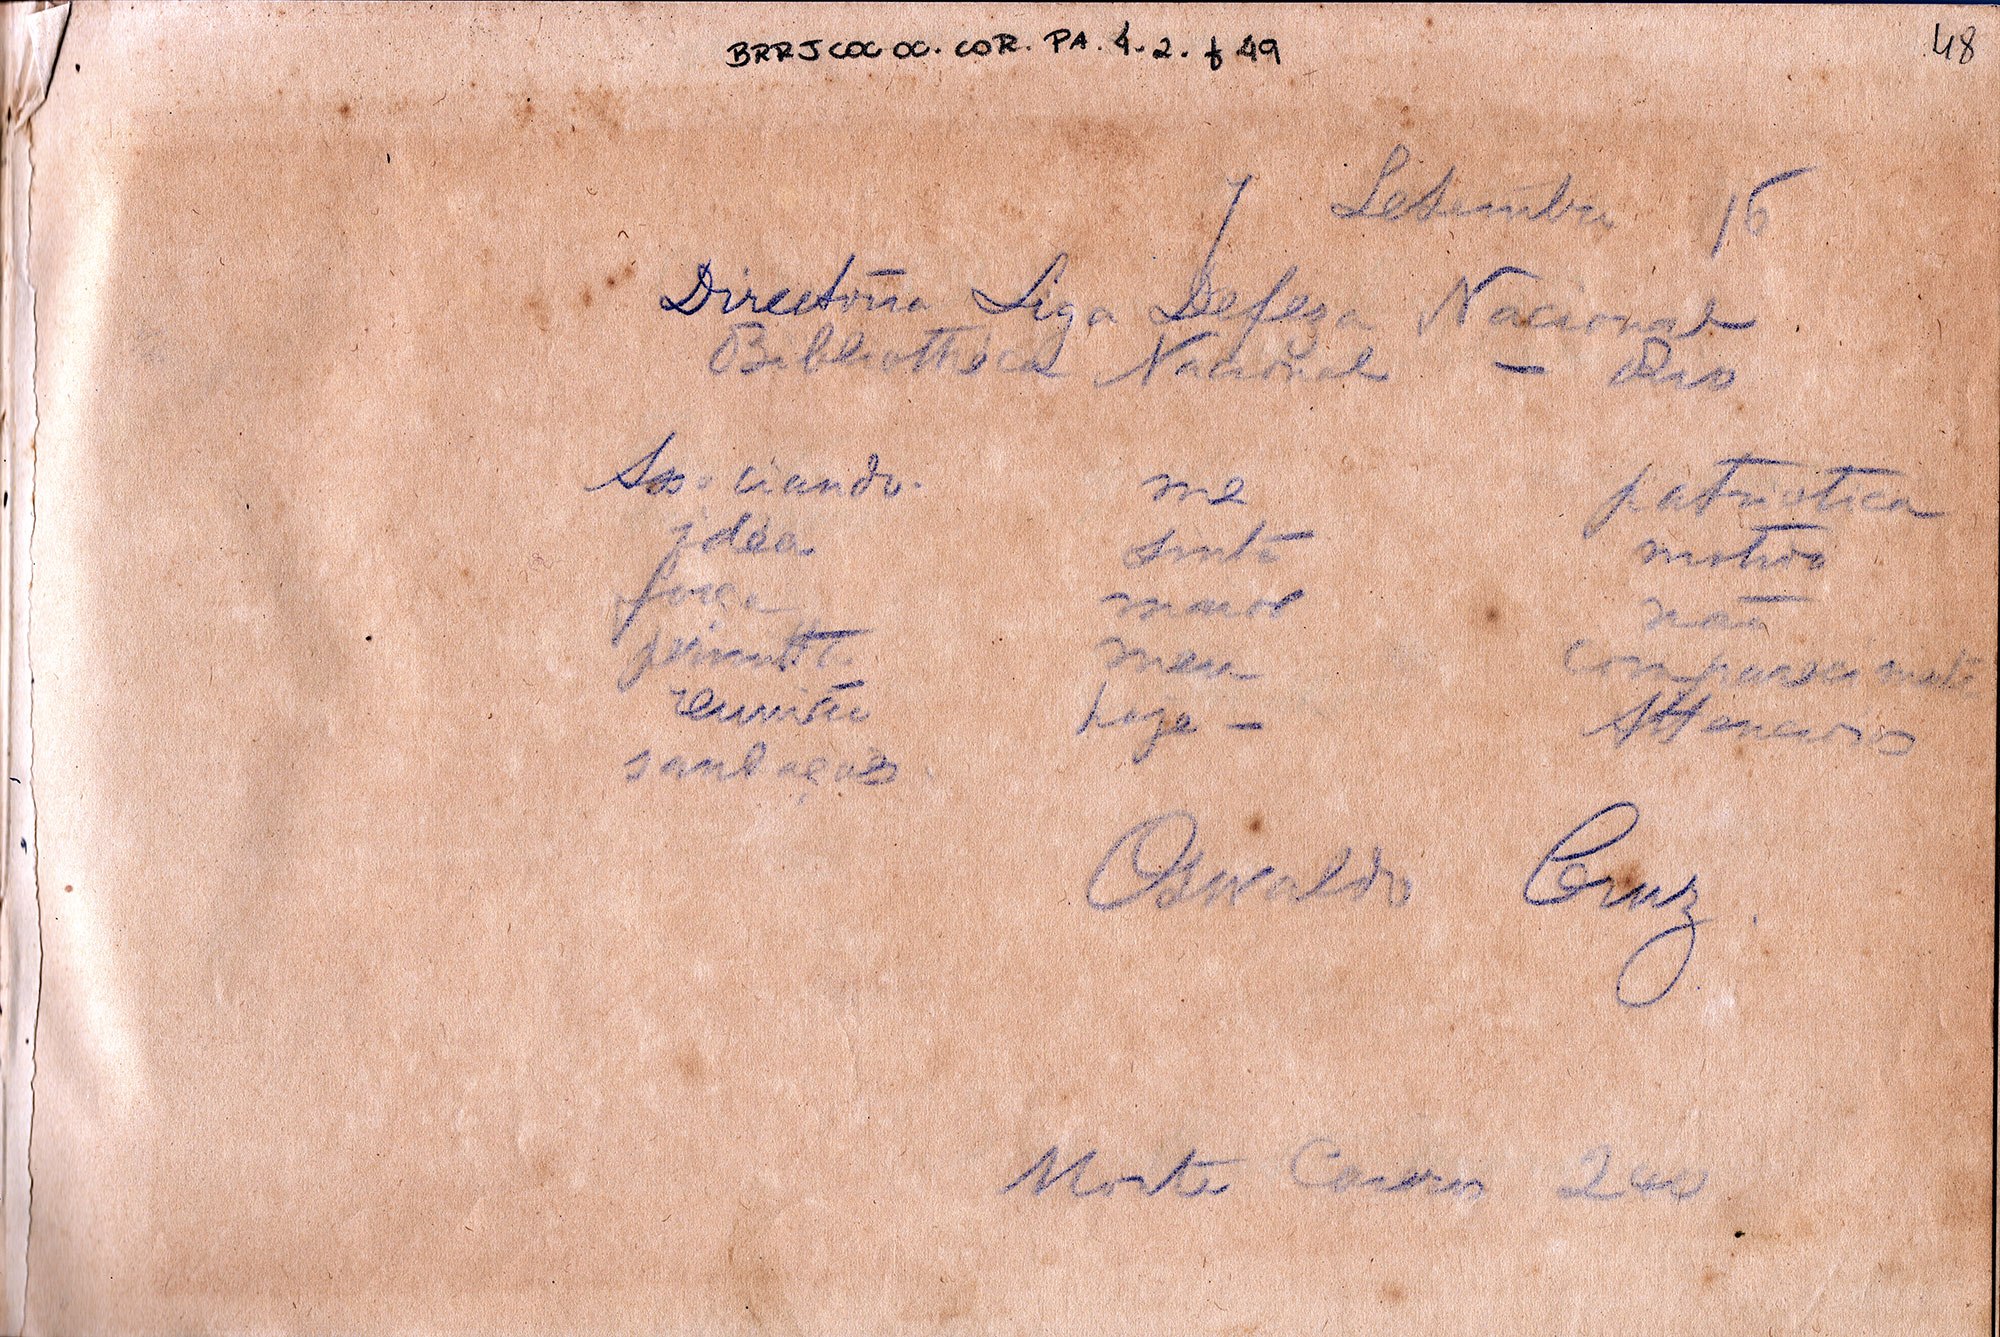 BRRJCOC OC. COR. PA. 4. 2. f 49
48
7 Setembro 16
Directoria Liga Defeza Nacional
Bibliotheca Nacional – Rio
Associando- me patriotica
idéa sinto motivo
força maior não
permitta meu comparecimento
reunião hoje – Attenciosas
saudações
Oswaldo Cruz.
Monte Caseros